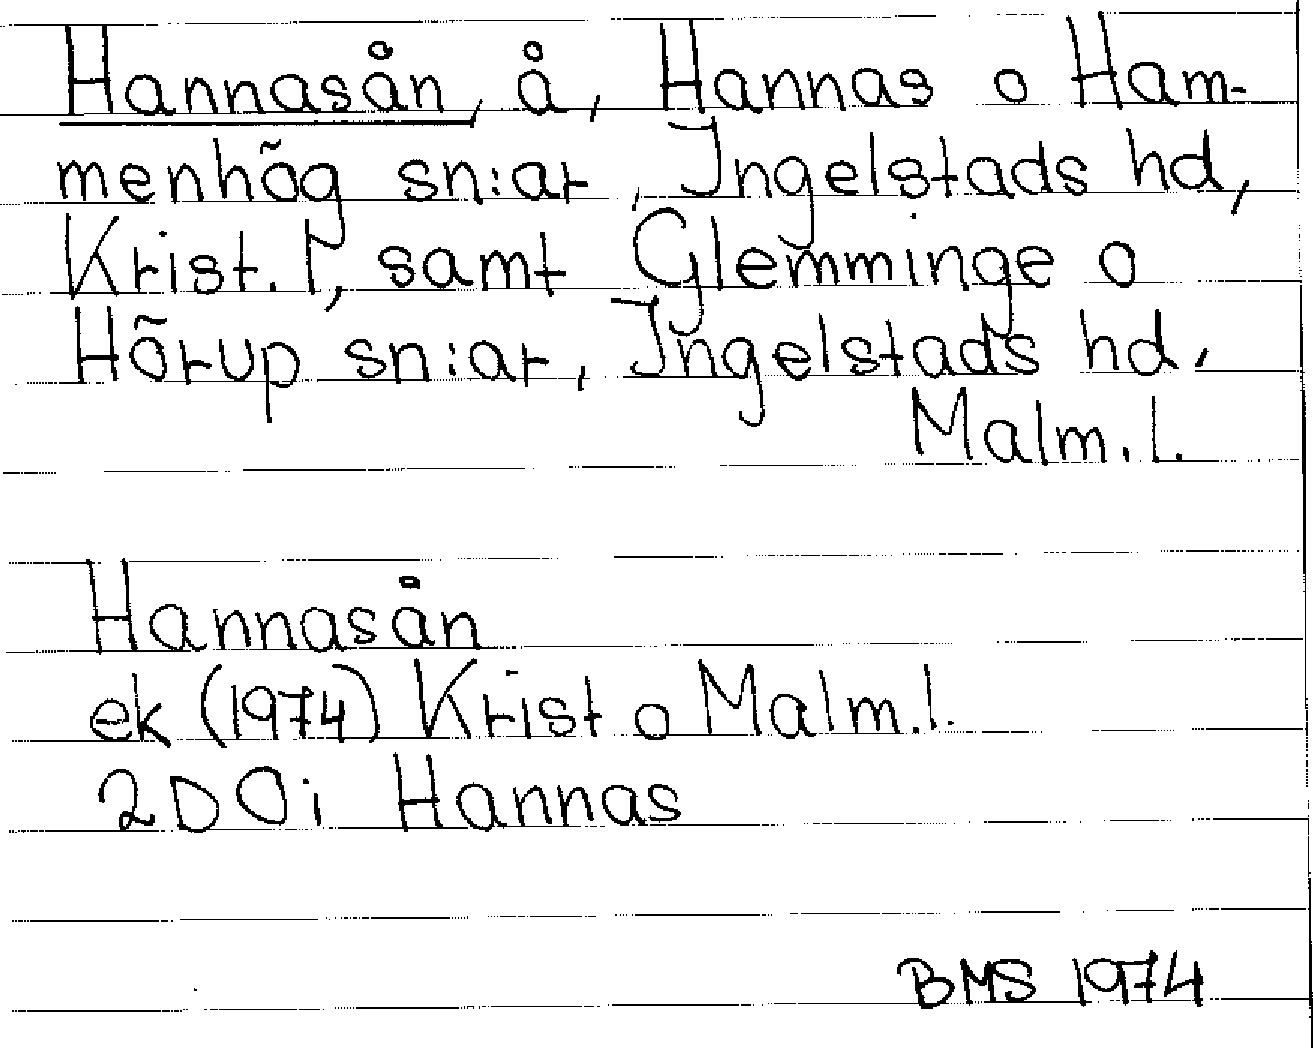 Hannasån, å, Hannas o Ham-
menhög sn:ar, Ingelstads hd,
Krist. l, samt Glemminge o
Hörup sn:ar, Ingelstads hd,
Malm. l.
Hannasån
ek (1974) Krist o Malm. l.
2D0i Hannas
BMS 1974